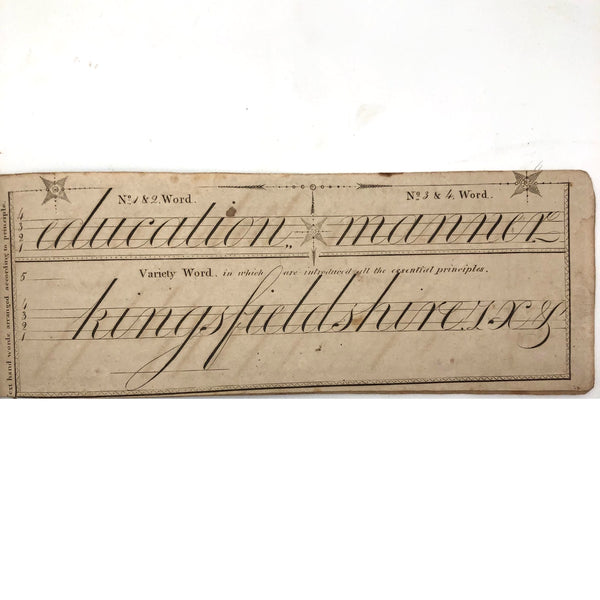 No. 1 & 2, Word.
No. 3 & 4, Word.
4
3
2
1
education,,
manner
Variety Word, in which are introduced all the essential principles.
5
4
3
2
1
kingsfieldshire, x &
ext hand words arranged according to principle.